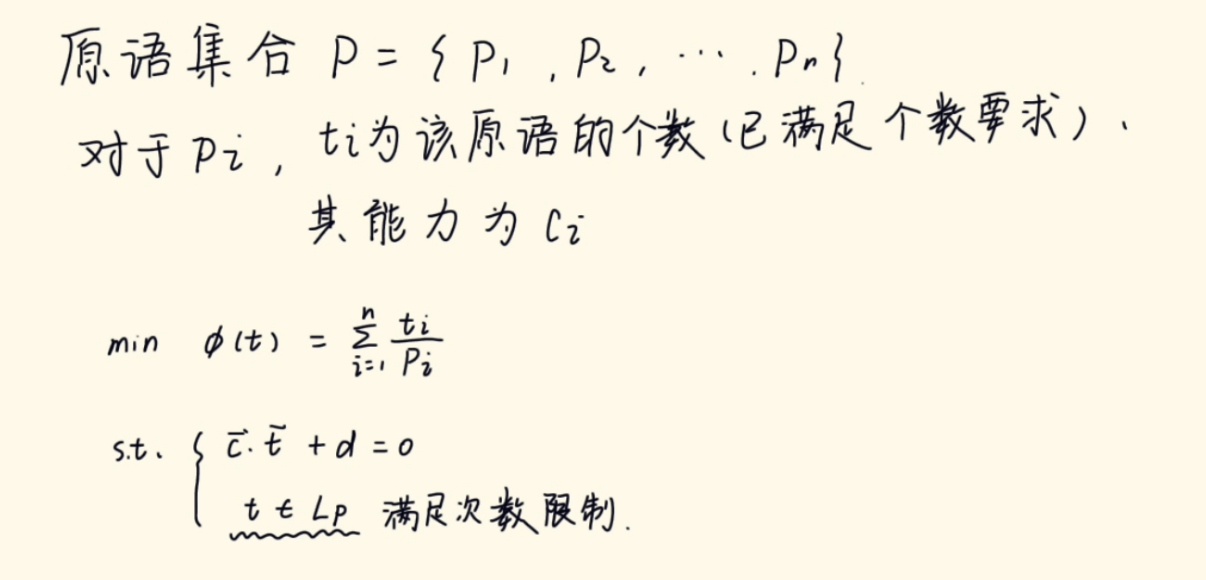 原语集合 P = { P₁ , P₂ , ⋯ . Pₙ}.
对于 Pi , ti为该原语的个数(已满足个数要求)、
其能力为 Ci
min ϕ(t) = ∑ᵢ₌₁ⁿ ti/Pi
s.t. { c⃗·t⃗ + d = 0
t ∈ Lp 满足次数限制.